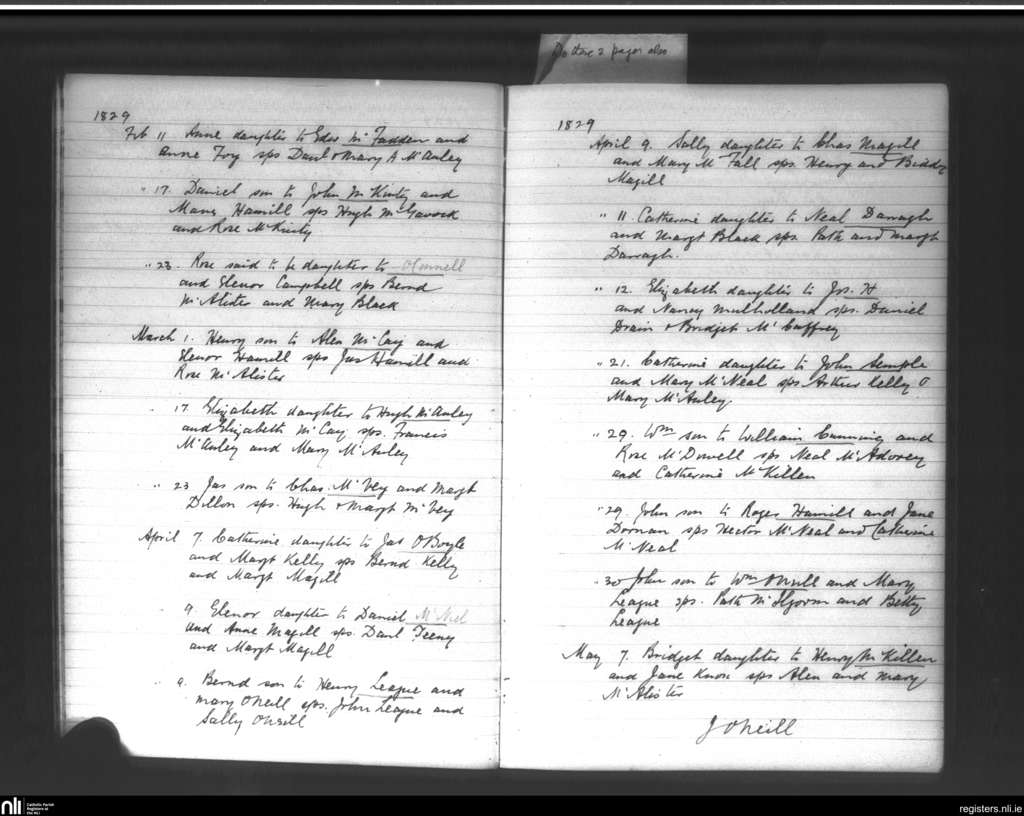 Do these 2 pages also
1829
Feb 11. Anne daughter to Edw McFadden and
Anne Foy sps Danl & Mary A McAuley
" 17. Daniel son to John McKinty and
Hamill sps Hugh McGavock
and Rose McKinty
" 23. Rose said to be daughter to O'Connell
and Elenor Campbell sps Bernd
McAlister and Mary Black
March 1. Henry son to Alen McCay and
Elenor Hamill sps Jas Hamill and
Rose McAlister
17 Elizabeth daughter to Hugh McAuley
and Elizabeth McCay sps. Francis
McAuley and Mary McAuley
" 23 Jas son to Chas. McVey and Margt
Dillon sps. Hugh & Margt McVey
April 7. Catherine daughter to Jas O'Boyle
and Margt Kelly sps Bernd Kelly
and Margt Magill
9. Elenor daughter to Daniel McNeil
and Anne Magill sps. Danl Feeney
and Margt Magill
" 9. Bernd son to Henry League and
Mary ONeill sps. John League and
Sally ONeill
1829
April 9. Sally daughter to Chas Magill
and Mary McFall sps. Henry and Biddy
Magill
" 11. Catherine daughter to Neal Darragh
and Margt Black sps. Patk and Margt
Darragh.
" 12. Elizabeth daughter to Jos. H
and Nancy Mulholland sps. Daniel
Drain & Bridget McCaffrey
" 21. Catherine daughter to John Semple
and Mary McNeal sps. Arthur Kelly &
Mary McAuley.
" 29. Wm son to William Cunning and
Rose McDowell sps Neal McAdorey
and Catherine McKillen
" 29. John son to Roger Hamill and Jane
Dornan sps Hector McNeal and Catherine
McNeal
" 30 John son to Wm ONeill and Mary
League sps. Patk McIlgorm and Betty
League
May 7. Bridget daughter to Henry McKillen
and Jane Knox sps Alen and Mary
McAlister
J ONeill
nli
Catholic Parish
Registers at
the NLI
registers.nli.ie